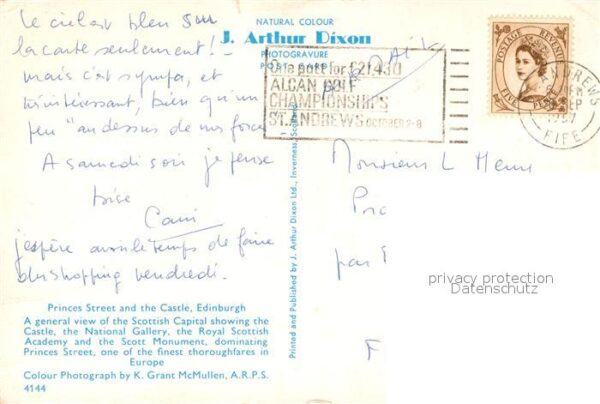 le ciel est bleu sur
la carte seulement! -
mais c'est sympa, et
intéressant, bien qu'un
peu "au dessus de nos forces"
A samedi soir je pense
bise
j'espère avoir le temps de faire
du shopping vendredi.
NATURAL COLOUR
J. Arthur Dixon
PHOTOGRAVURE
POST CARD
One putt for £21,430
ALCAN GOLF
CHAMPIONSHIPS
ST. ANDREWS OCTOBER 2-8
POSTAGE REVENUE
FIVE PENCE
ANDREWS
SEP
1967
FIFE
Monsieur L Henri
par
F
privacy protection
Datenschutz
Printed and Published by J. Arthur Dixon Ltd., Inverness, Scotland
Princes Street and the Castle, Edinburgh
A general view of the Scottish Capital showing the
Castle, the National Gallery, the Royal Scottish
Academy and the Scott Monument, dominating
Princes Street, one of the finest thoroughfares in
Europe
Colour Photograph by K. Grant McMullen, A.R.P.S.
4144